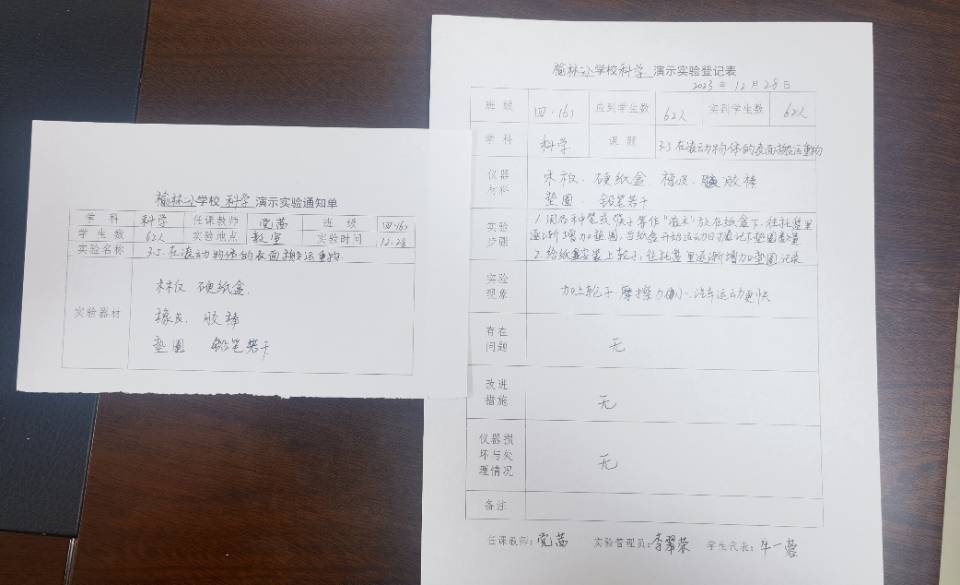 榆林小学校 科学 演示实验通知单
学 科 科学 任课教师 党茜 班 级 四·16)
学 生 数 62人 实验地点 教室 实验时间 12.28
实验名称 3.5.在滚动物体的表面搬运重物
实验器材
木板 硬纸盒
橡皮 胶棒
垫圈 铅笔若干
榆林小学校科学 演示实验登记表
2023 年 12 月 28 日
班 级 四·16) 应到学生数 62人 实到学生数 62人
学 科 科学 课 题 3.5 在滚动物体的表面搬运重物
仪器材料
木板、硬纸盒、橡皮、胶棒
垫圈 铅笔若干
实验步骤
1.用几种笔或筷子等作“滚木”放在纸盒下,往托盘里
逐渐增加垫圈,当纸盒开始运动时记下垫圈数量
2.给纸盒安装上轮子,往托盘里逐渐增加垫圈记录
实验现象
加上轮子 摩擦力小、汽车运动更快
存在问题
无
改进措施
无
仪器损坏与处理情况
无
备注
任课教师:党茜 实验管理员:李翠荣 学生代表:牛一蓉